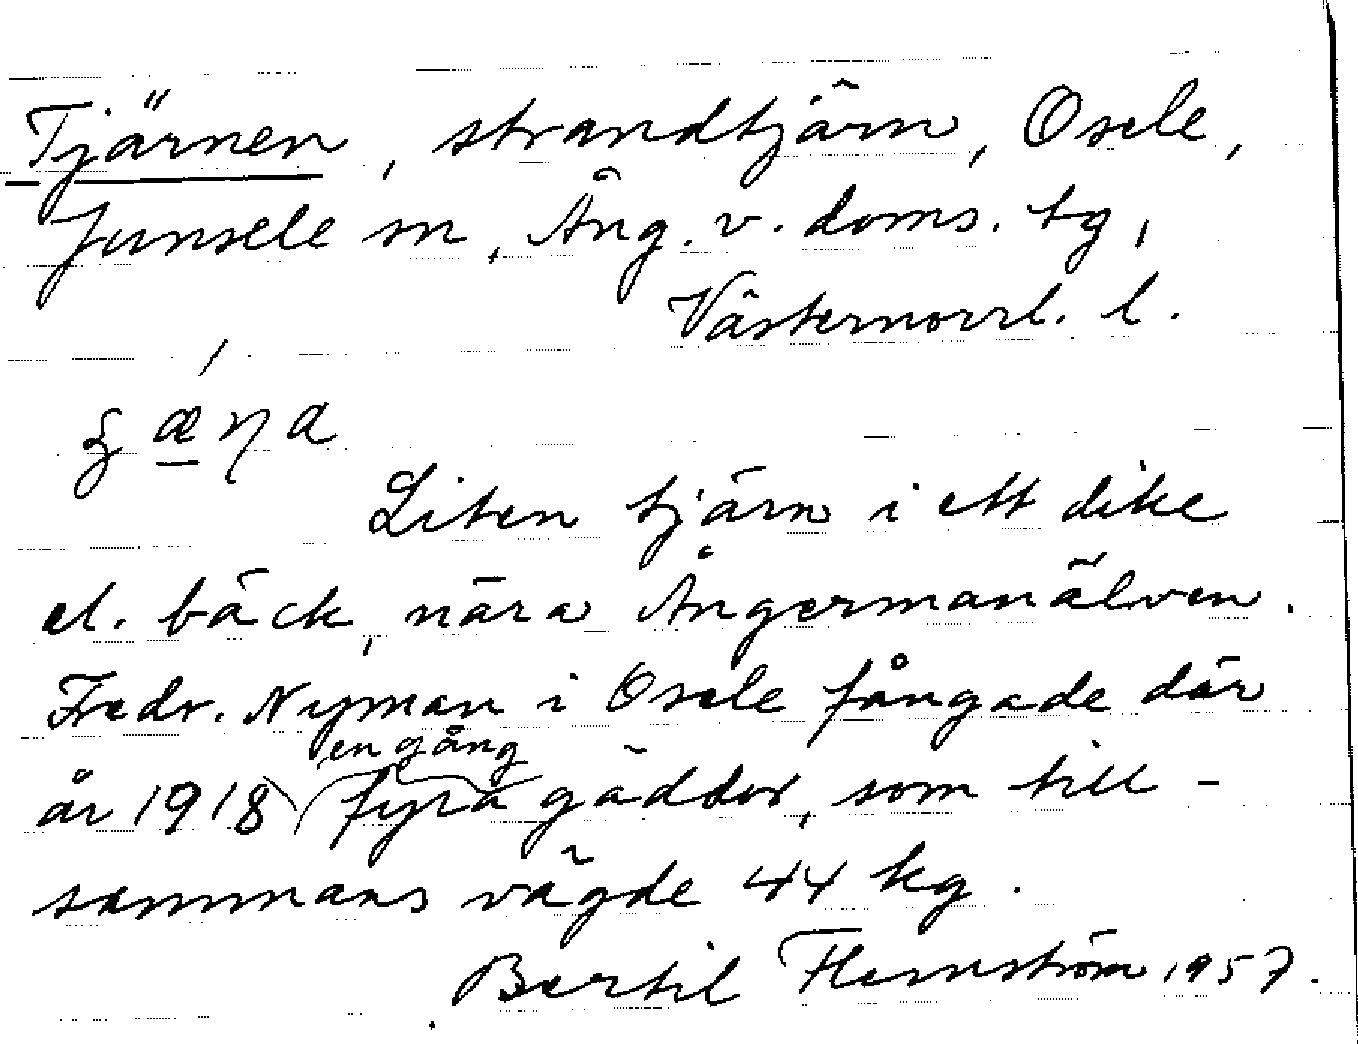 Tjärnen, strandtjärn, Osele,
Junsele sn, Ång. v. doms. tg,
Västernorrl. l.
Liten tjärn i ett dike
el. bäck, nära Ångermanälven.
Fredr. Nyman i Osele fångade där
en gång
år 1918 fyra gäddor, som till-
sammans vägde 44 kg.
Bertil Flemström 1957.